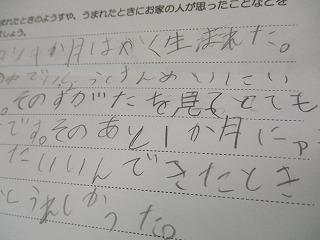 まれたときのようすや、うまれたときにお家の人が思ったことなどを
しょう。
か月はやく生まれた。
いっしょうけんめいにい
。そのすがたを見てとても
です。そのあと1か月に
たいいんできたとき
とうれしかった。